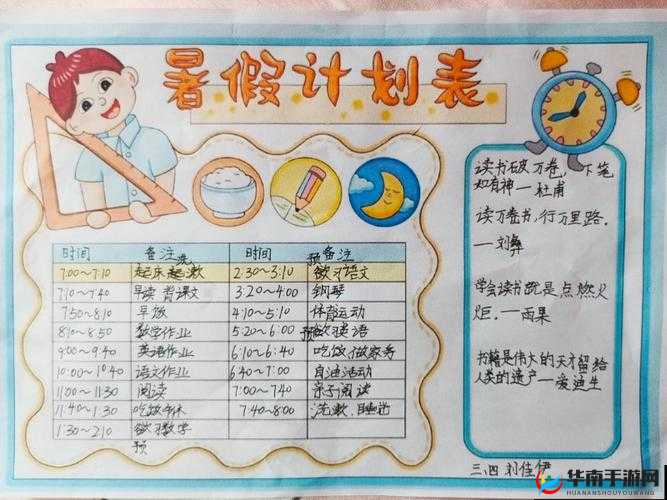 暑假计划表
时间 备注 时间 预备注
7:00~7:10 起床 起漱 2:30~3:10 欲习语文
7:10~7:40 早读 背课文 3:20~4:00 钢琴
7:50~8:10 早饭 4:10~5:10 体育运动
8:10~8:50 数学作业 5:20~6:00 预欲英语
9:00~9:40 英语作业 6:10~6:40 吃饭 做家务
10:00~10:40 语文作业 6:40~7:00 自由活动
11:00~11:30 阅读 7:00~7:40 亲子阅读
11:40~1:30 吃饭午休 7:40~8:00 洗漱、睡觉
1:30~2:10 欲习数学
预
读书破万卷，下笔
如有神—杜甫
读万卷书，行万里路.
—刘彝
学会读书就是点燃火
炬.—雨果
书籍是伟大的天才留给
人类的遗产—爱迪生
三、四 刘佳伊
华南手游网
HUANANSHOUYOUWANG